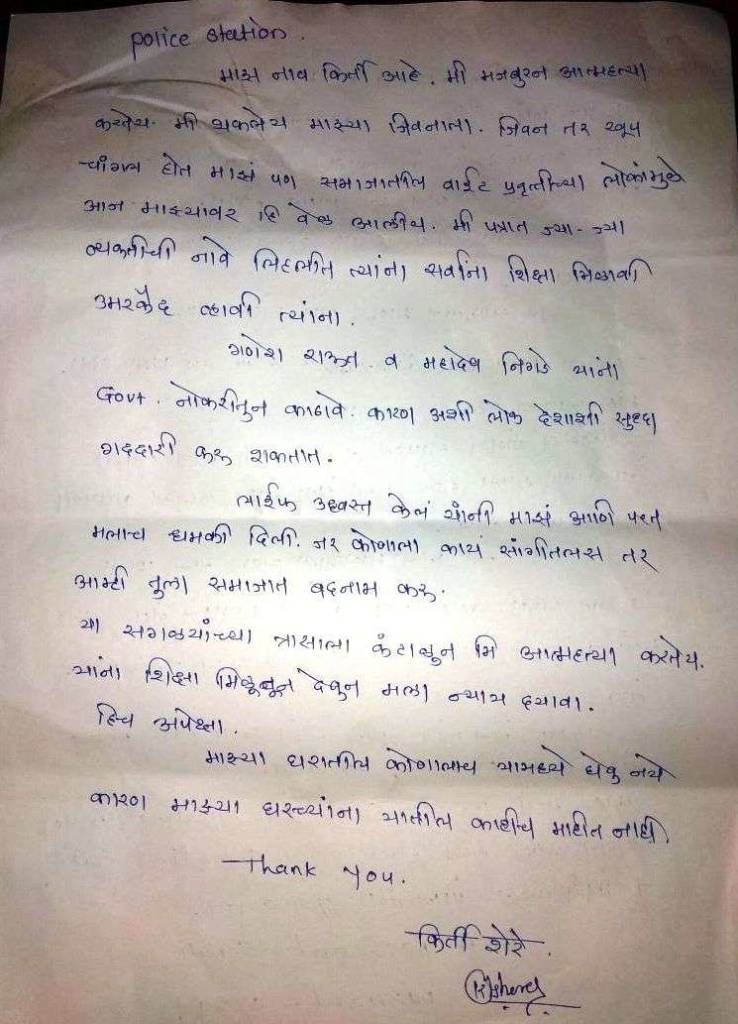 police station.
माझं नाव किर्ती आहे. मी मजबुरन आत्महत्या
करतेय. मी थकलेय माझ्या जिवनाला. जिवन तर खूप
चांगलं होत माझं पण समाजातील वाईट प्रवृतीच्या लोकांमुळे
आज माझ्यावर हि वेळ आलीय. मी पत्रात ज्या-ज्या
व्यक्तींची नावे लिहलीत त्यांना सर्वांना शिक्षा मिळावी
उमरकैद व्हावी त्यांना.
गणेश राऊत व महादेव निगडे यांना
Govt. नोकरीतुन काढावे. कारण अशी लोक देशाशी सुध्दा
गद्दारी करू शकतात.
लाईफ उध्वस्त केलं यांनी माझं आणि परत
मलाच धमकी दिली. जर कोणाला काय सांगीतलस तर
आम्ही तुला समाजात बदनाम करू.
या सगळ्यांच्या त्रासाला कंटाळून मि आत्महत्या करतेय.
यांना शिक्षा देवुन मला न्याय द्यावा.
हिच अपेक्षा.
माझ्या घरातील कोणालाच यामध्ये घेवु नये
कारण माझ्या घरच्यांना यातील काहीच माहीत नाही.
Thank You.
किर्ती शेरे.